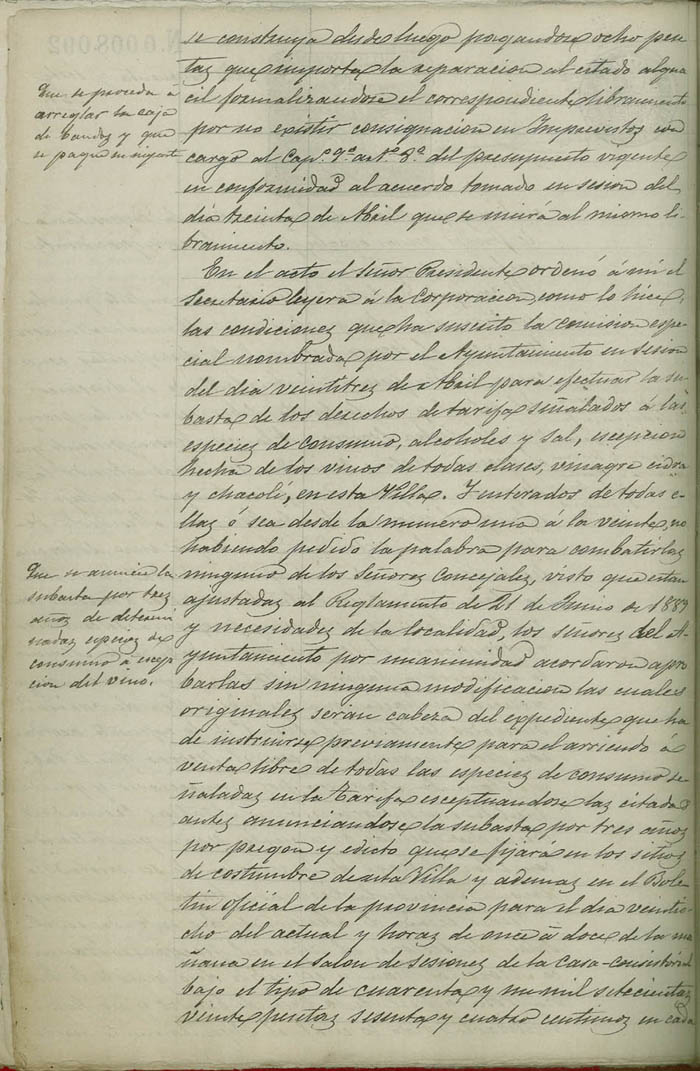 se construya desde luego pagandose ocho pese
tas que importa la reparacion al citado algua
cil formalizandose el correspondiente libramiento
por no existir consignacion en Imprevistos con
cargo al Cap.º 9º artº 8º del presupuesto vigente
en conformidad al acuerdo tomado en sesion del
dia treinta de Abril que se unirá al mismo li-
bramiento.
Que se proceda a
arreglar la caja
de bandos y que
se pague
En el acto el Señor Presidente ordenó á mi el
Secretario leyera á la Corporacion, como lo hice,
las condiciones que ha suscrito la comision espe
cial nombrada por el Ayuntamiento en sesion
del dia veintitres de Abril para efectuar la su-
basta de los derechos de tarifa señalados á las
especies de consumo, alcoholes y sal, escepcion
hecha de los vinos de todas clases, vinagre cidra
y chacolí, en esta Villa. Y enterados de todas e-
llas ó sea desde la numero una á la veinte, no
habiendo pedido la palabra para combatirlas
ninguno de los Señores Concejales, visto que estan
ajustadas al Reglamento de 21 de Junio de 1889
y necesidades de la localidad, los señores del A-
yuntamiento por unanimidad acordaron apro
barlas sin ninguna modificacion las cuales
originales serian cabeza del expediente que ha
de instruirse previamente para el arriendo á
venta libre de todas las especies de consumo se-
ñaladas en la tarifa esceptuandose las citadas
antes anunciandose la subasta por tres años
por pregon y edicto que se fijará en los sitios
de costumbre de esta Villa y ademas en el Bole
tin oficial de la provincia para el dia veintio-
cho del actual y horas de once á doce de la ma
ñana en el salon de sesiones de la Casa-consistorial
bajo el tipo de cuarenta y un mil setecientas
veinte pesetas sesenta y cuatro centimos en cada
Que se anuncie la
subasta por tres
años de determi
nadas especies de
consumo á escep
cion del vino.